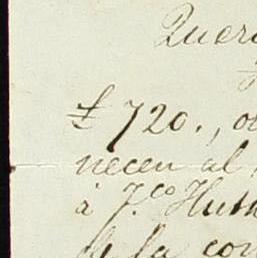 Quer
£ 720., o
necen al
à J.co Huth
de la con